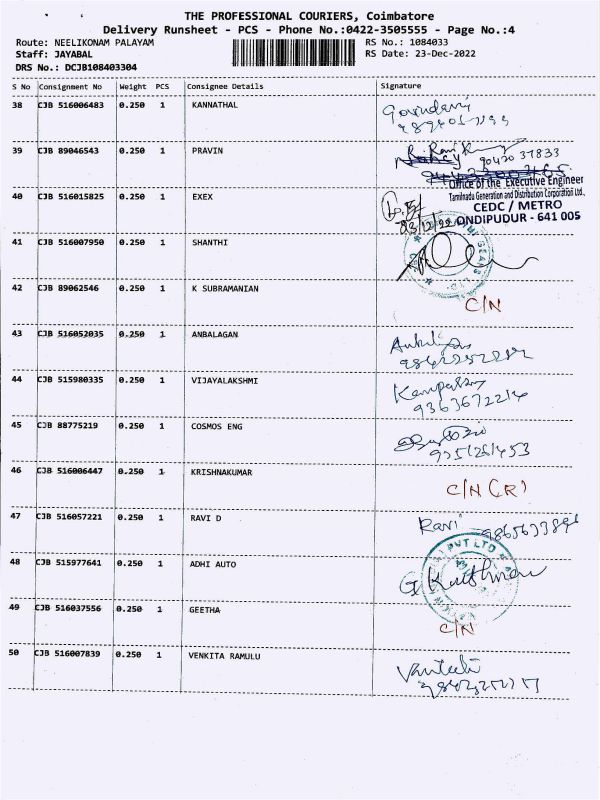 THE PROFESSIONAL COURIERS, Coimbatore
Delivery Runsheet - PCS - Phone No.:0422-3505555 - Page No.:4
Route: NEELIKONAM PALAYAM
RS No.: 1084033
Staff: JAYABAL
RS Date: 23-Dec-2022
DRS No.: DCJB108403304
S No Consignment No Weight PCS Consignee Details Signature
38 CJB 516006483 0.250 1 KANNATHAL
39 CJB 89046543 0.250 1 PRAVIN
90420 37833
40 CJB 516015825 0.250 1 EXEX
Office of the Executive Engineer
Tamilnadu Generation and Distribution Corporation Ltd.,
CEDC / METRO
ONDIPUDUR - 641 005
23/12/22
41 CJB 516007950 0.250 1 SHANTHI
42 CJB 89062546 0.250 1 K SUBRAMANIAN
C/N
43 CJB 516052035 0.250 1 ANBALAGAN
44 CJB 515980335 0.250 1 VIJAYALAKSHMI
9363672214
45 CJB 88775219 0.250 1 COSMOS ENG
46 CJB 516006447 0.250 1 KRISHNAKUMAR
C/N (R)
47 CJB 516057221 0.250 1 RAVI D
Ravi
48 CJB 515977641 0.250 1 ADHI AUTO
PVT LTD
49 CJB 516037556 0.250 1 GEETHA
C/N
50 CJB 516007839 0.250 1 VENKITA RAMULU